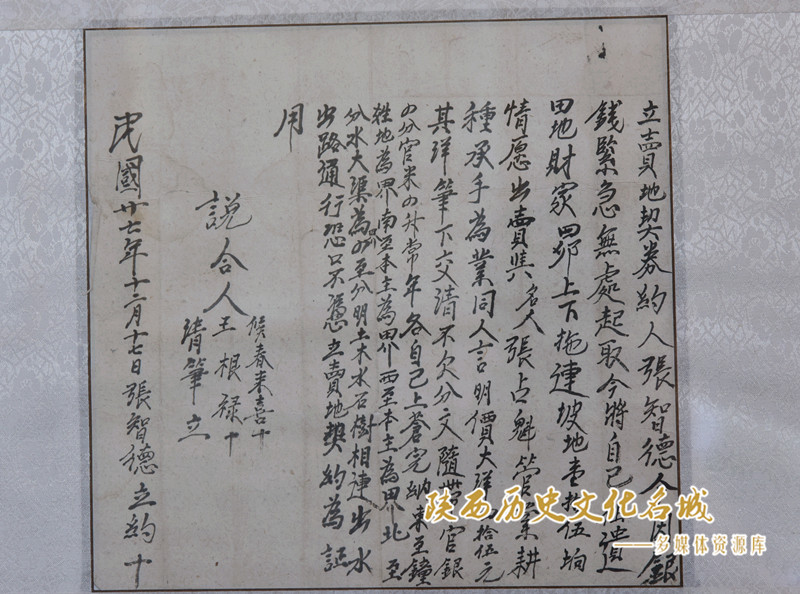 立賣地契券約人張智德人因銀
錢緊急無處起取今將自己遺
田地財家田卯上下拖連坡地壹拾伍垧
情愿出賣與名人張占魁管業耕
種承手為業同人言明價大洋拾伍元
其洋筆下交清不欠分文隨帶官銀
四分官米四升常年各自己上蒼完納東至鐘
姓地為界南至本主為界西至本主為界北至
分水大渠為界四至分明土木水石樹相連出水
出路通行恐口不憑立賣地契約為証
用
說合人
侯春來喜十
王根禄十
清筆立
民國廿七年十二月十七日張智德立約十
陕西历史文化名城
——多媒体资源库